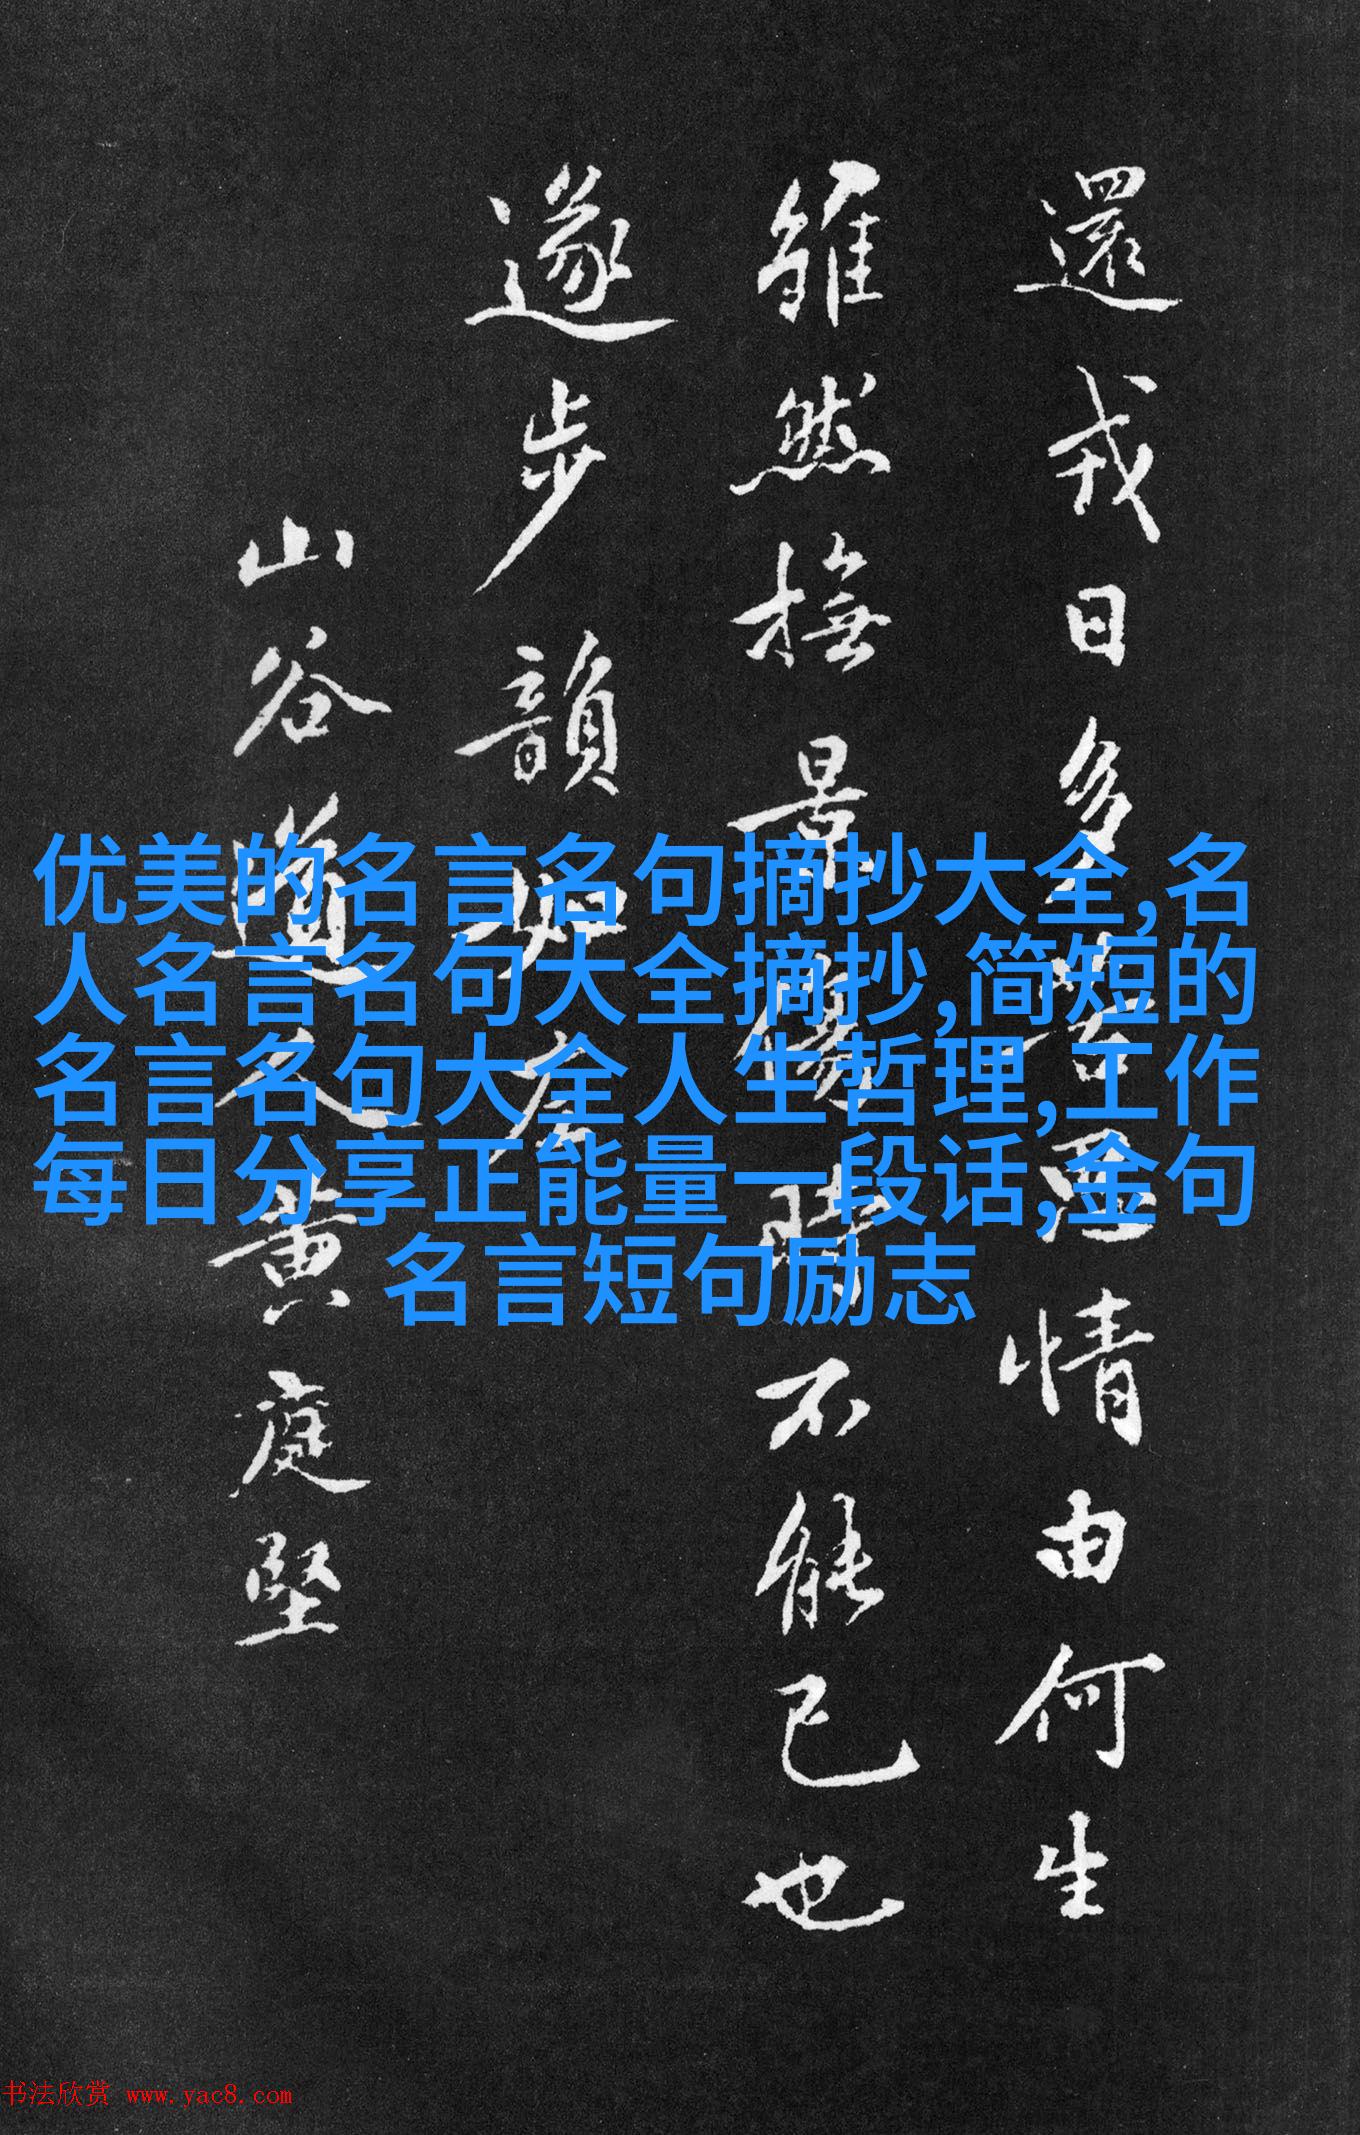 還戎日多苦情由何生
雖然撫景傷時不能已也
遂步韻如左
山谷道人黃庭堅
优美的名言名句摘抄大全,名
人名言名句大全摘抄,简短的
名言名句大全人生哲理,工作
每日分享正能量一段话,金句
名言短句励志
书法欣赏 www.yac8.com